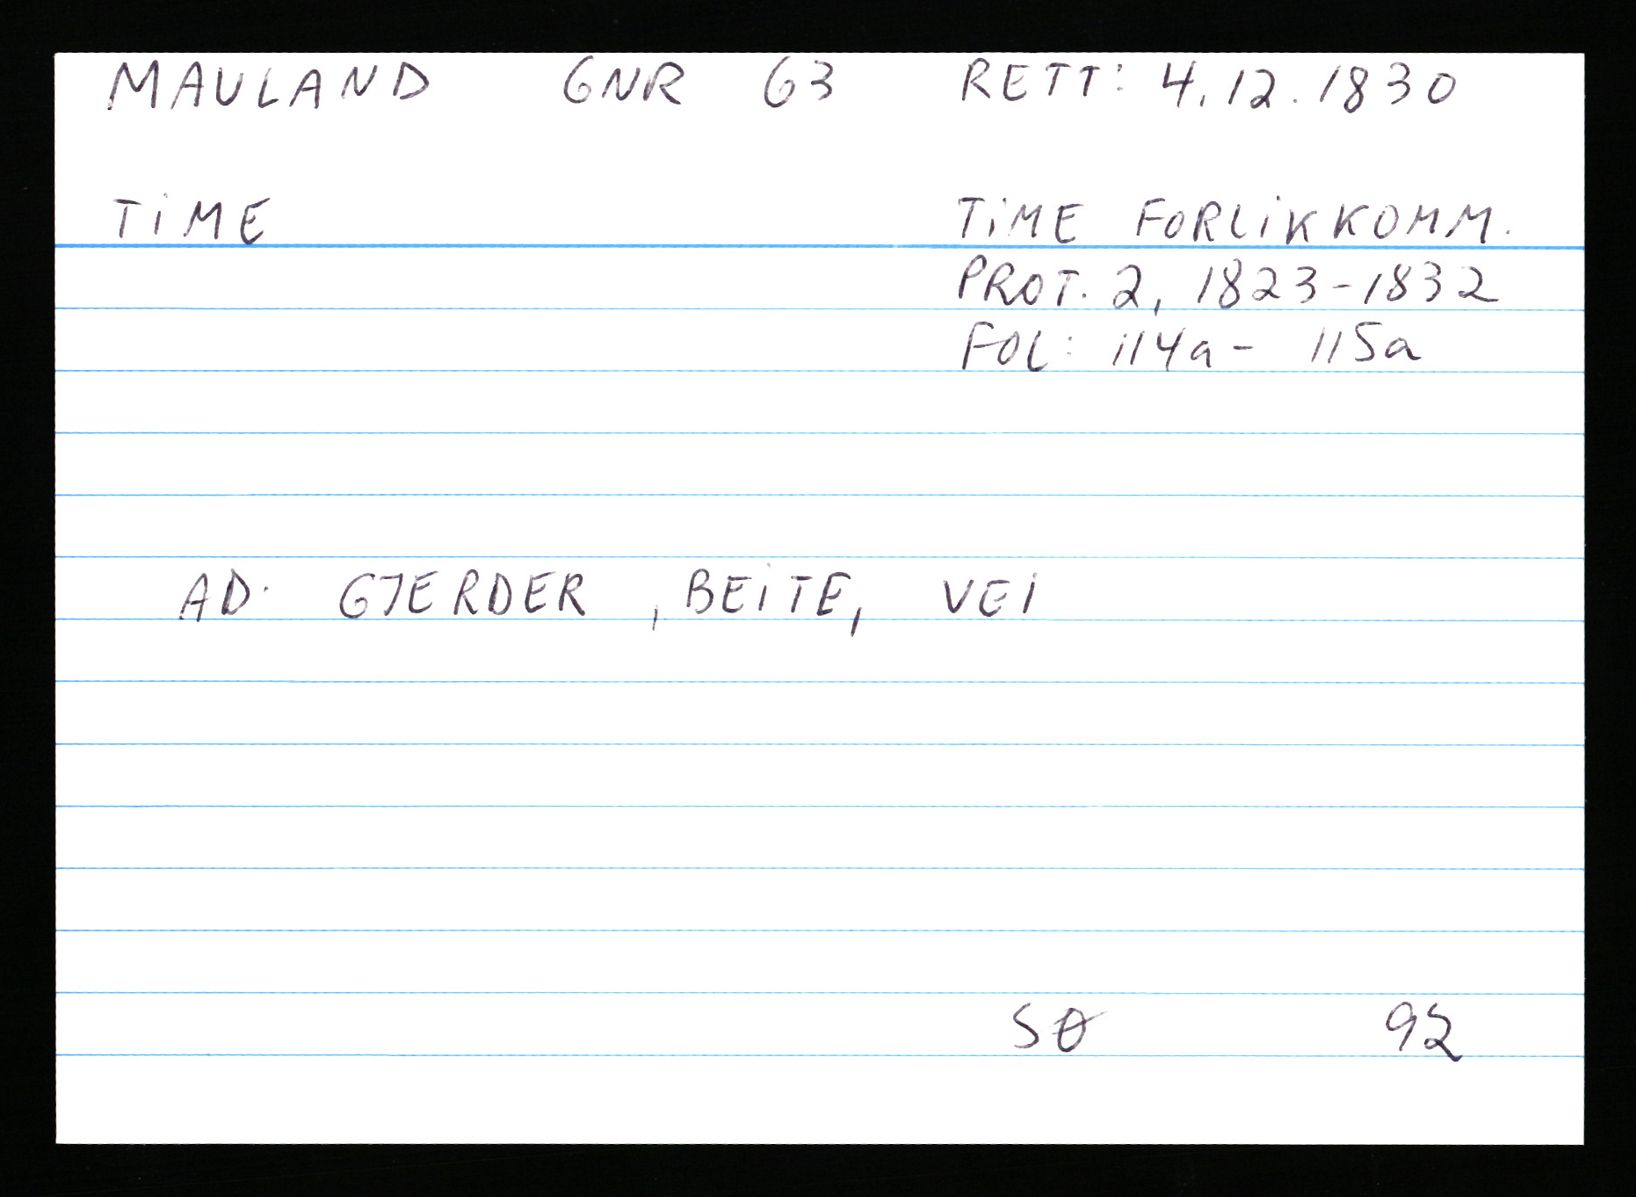 MAULAND GNR 63 RETT: 4.12.1830
TIME TIME FORLIKKOMM.
PROT. 2, 1823-1832
FOL: 114a - 115a
AD. GJERDER, BEITE, VEI
SØ 92